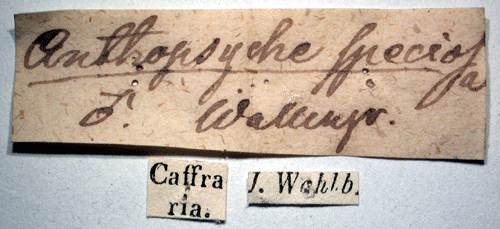 Anthopsyche speciosa
♂. Wallengr.
Caffra
ria.
J. Wahlb.